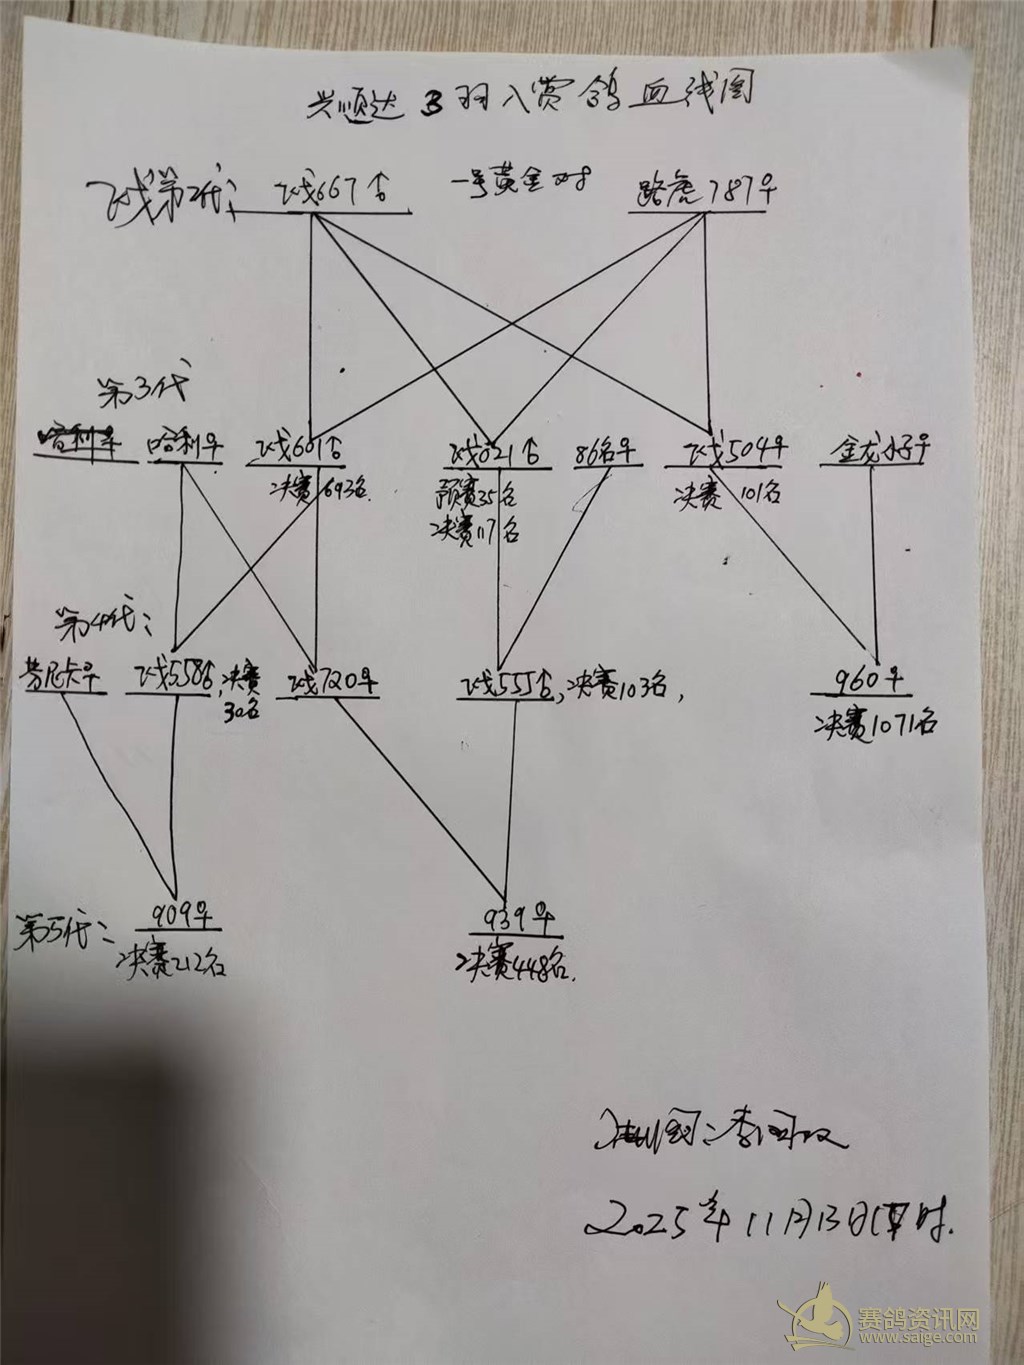 兴顺达3羽入赏鸽血线图
飞戈第2代: 飞戈667♂ 一号黄金对 路虎787♀
第3代
哈利♀ 哈利♀ 飞戈601♂ 飞戈021♂ 86名♀ 飞戈504♀ 金龙小子♀
决赛693名. 预赛35名 决赛 101名
决赛117名
第4代:
劳尼卡♀ 飞戈558♂,决赛 飞戈720♀ 飞戈555♂,决赛103名, 960♀
30名 决赛1071名
第5代: 909♀ 939♀
决赛212名 决赛448名.
李
2025年11月13日 时.
赛鸽资讯网
www.saige.com